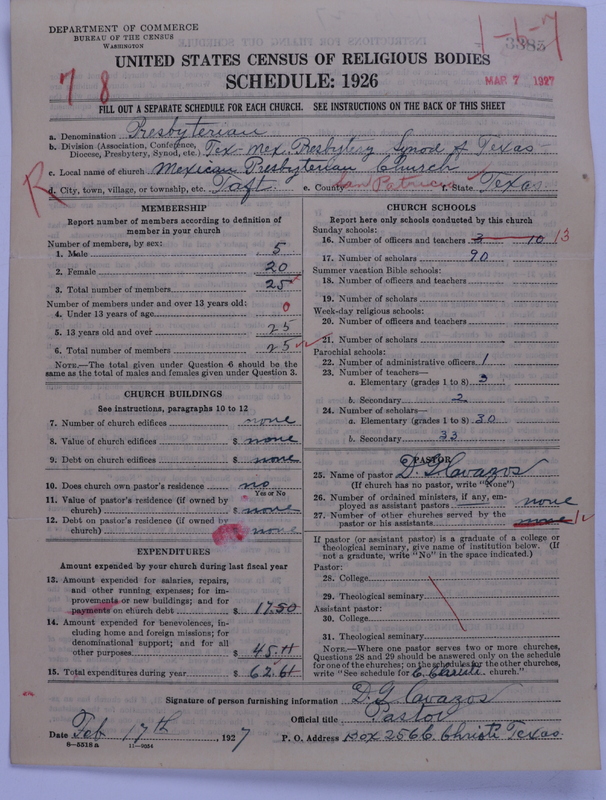 DEPARTMENT OF COMMERCE
BUREAU OF THE CENSUS
WASHINGTON
1-1-7
3383
UNITED STATES CENSUS OF RELIGIOUS BODIES
SCHEDULE: 1926
7 8
MAR 7 1927
FILL OUT A SEPARATE SCHEDULE FOR EACH CHURCH. SEE INSTRUCTIONS ON THE BACK OF THIS SHEET
a. Denomination Presbyterian
b. Division (Association, Conference, Diocese, Presbytery, Synod, etc.) Tex-Mex. Presbytery Synod of Texas
c. Local name of church Mexican Presbyterian Church
R
d. City, town, village, or township, etc. Taft. e. County San Patricio f. State Texas.
MEMBERSHIP
Report number of members according to definition of
member in your church
Number of members, by sex:
1. Male 5
2. Female 20
3. Total number of members 25
Number of members under and over 13 years old:
4. Under 13 years of age 0
5. 13 years old and over 25
6. Total number of members 25
NOTE.—The total given under Question 6 should be
same as the total of males and females given under Question 3.
CHURCH BUILDINGS
See instructions, paragraphs 10 to 12
7. Number of church edifices none
8. Value of church edifices $ none
9. Debt on church edifices $ none
10. Does church own pastor's residence? no
Yes or No
11. Value of pastor's residence (if owned by
church) $ none
12. Debt on pastor's residence (if owned by
church) none
EXPENDITURES
Amount expended by your church during last fiscal year
13. Amount expended for salaries, repairs,
and other running expenses; for im-
provements or new buildings; and for
payments on church debt $ 17.50
14. Amount expended for benevolences, in-
cluding home and foreign missions; for
denominational support; and for all
other purposes $ 45.11
15. Total expenditures during year $ 62.61
CHURCH SCHOOLS
Report here only schools conducted by this church
Sunday schools:
16. Number of officers and teachers 3 10 13
17. Number of scholars 90
Summer vacation Bible schools:
18. Number of officers and teachers
19. Number of scholars
Week-day religious schools:
20. Number of officers and teachers
21. Number of scholars
Parochial schools:
22. Number of administrative officers 1
23. Number of teachers—
a. Elementary (grades 1 to 8) 3
b. Secondary 2
24. Number of scholars—
a. Elementary (grades 1 to 8) 30
b. Secondary 33
PASTOR
25. Name of pastor D. G. Cavazos
(If church has no pastor, write "None")
26. Number of ordained ministers, if any, em-
ployed as assistant pastors none
27. Number of other churches served by the
pastor or his assistants none
If pastor (or assistant pastor) is a graduate of a college or
theological seminary, give name of institution below. (If
not a graduate, write "No" in the space indicated.)
Pastor:
28. College
29. Theological seminary
Assistant pastor:
30. College
31. Theological seminary
NOTE.—Where one pastor serves two or more churches,
Questions 28 and 29 should be answered only on the schedule
for one of the churches; on the schedules for the other churches,
write "See schedule for C. Christi church."
Signature of person furnishing information D. G. Cavazos
Official title Pastor
Date Feb 17th, 1927 P. O. Address Box 256 C. Christi Texas.
8-5318a 11-9034